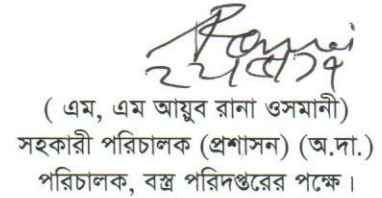 ( এম, এম আয়ুব রানা ওসমানী)
সহকারী পরিচালক (প্রশাসন) (অ.দা.)
পরিচালক, বস্ত্র পরিদপ্তরের পক্ষে।